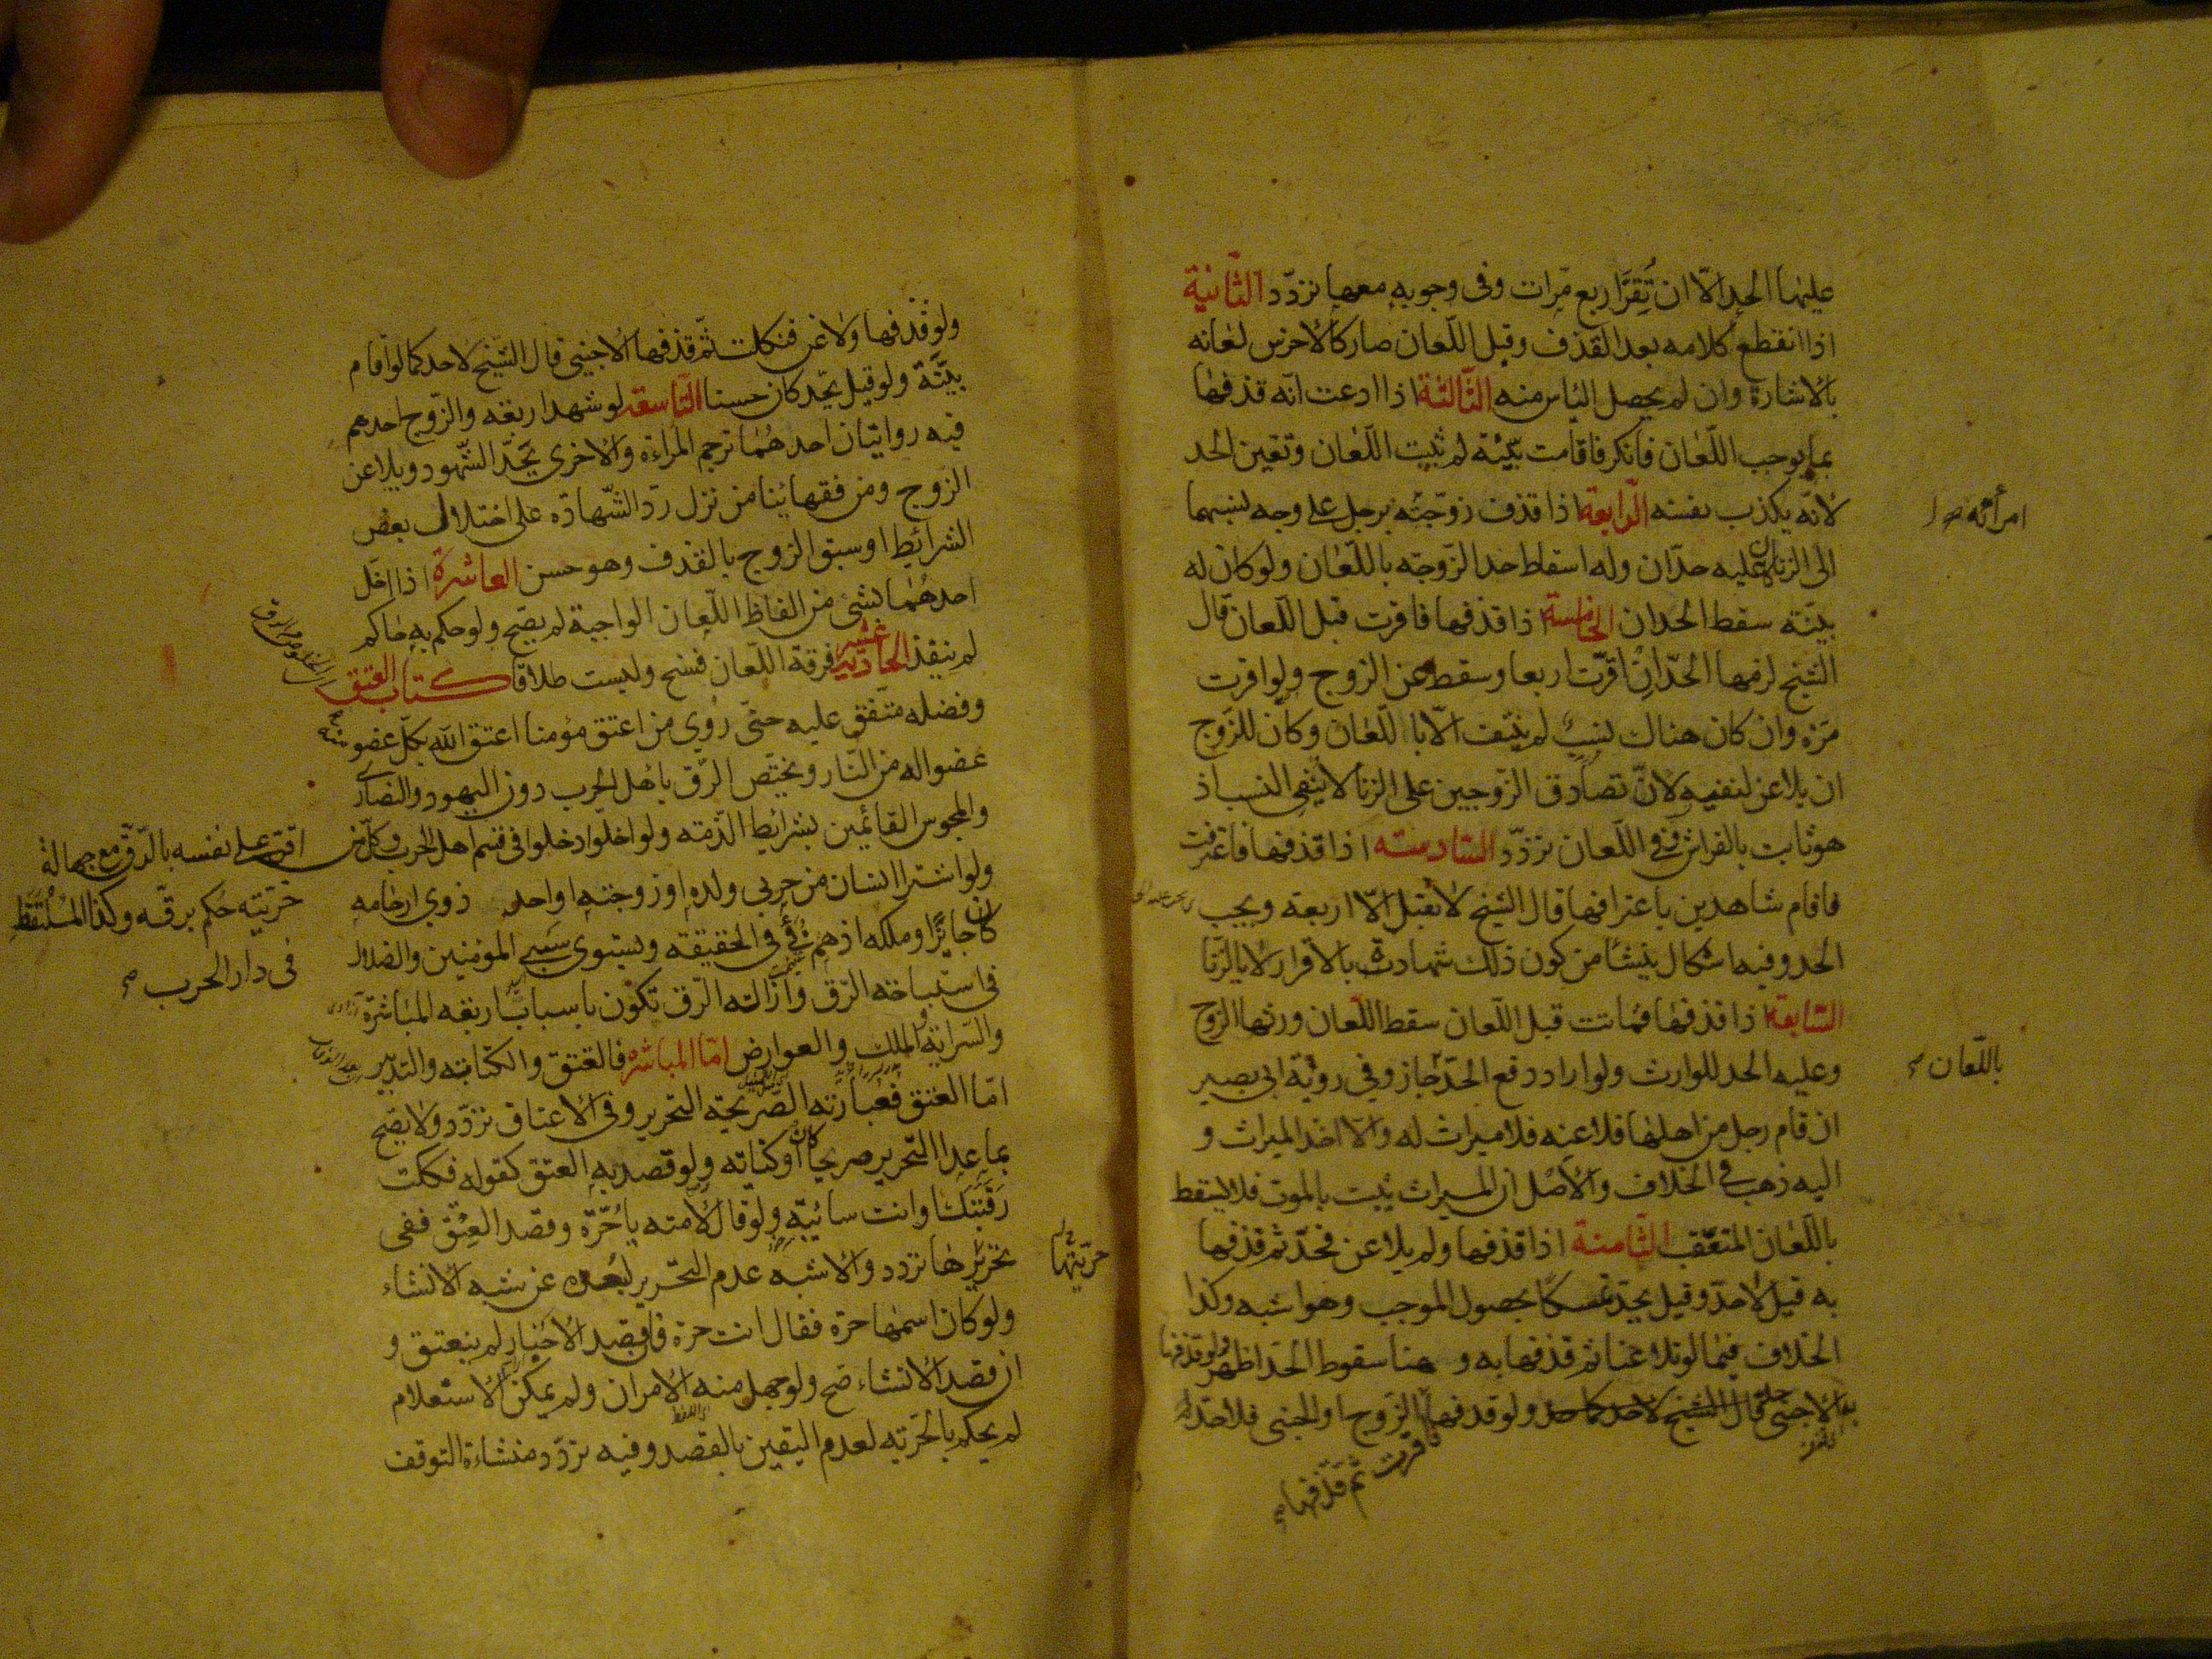 عليها الحد الّا ان تُقِرَّ اربع مرّات وفى وجوبه معها تردّد الثّانية
اذا انقطع كلامه بعد القذف وقبل اللّعان صار كالأخرس لعانه
بالاشارة وان لم يحصل اليأس منه الثّالثة اذا ادعت انّه قذفها
بما يوجب اللّعان فانكر فاقامت بيّنة لم يثبت اللّعان وتعين الحد
لانّه يكذب نفسه الرّابعة اذا قذف زوجته برجل على وجه لنسبهما
امرأته
الى الزنا كان عليه حدّان وله اسقاط حد الزّوجة باللّعان ولو كان له
بيّنة سقط الحدان الخامسة اذا قذفها فاقرت قبل اللّعان قال
الشيخ لزمها الحدّ ان اقرّت اربعا وسقط عن الزوج ولو اقرت
مرّة وان كان هناك نسب لم ينتف الّا باللّعان وكان للزّوج
ان يلاعن لنفيه لانّ تصادق الزّوجين على الزنا لا ينفى النسب اذ
هو ثابت بالفراش وفى اللّعان تردّد السّادسة اذا قذفها فاعترفت
فاقام شاهدين باعترافها قال الشيخ لا يقبل الّا اربعة ويجب
الحد وفيه اشكال ينشأ من كون ذلك شهادة بالاقرار لا بالزّنا
السّابعة اذا قذفها فماتت قبل اللّعان سقط اللّعان ورثها الزوج
وعليه الحد للوارث ولو اراد دفع الحدّ جاز وفى رواية ابى بصير
باللّعان
ان قام رجل من اهلها فلاعنه فلا ميراث له والّا اخذ الميراث و
اليه ذهب فى الخلاف والأصل ان الميراث يثبت بالموت فلا يسقط
باللّعان المتعقب الثّامنة اذا قذفها ولم يلاعن فحدّ ثم قذفها
به قيل لا حدّ وقيل يحدّ تمسكا بحصول الموجب وهو اشبه وكذا
الخلاف فيما لو تلاعنا ثم قذفها به و هنا سقوط الحدّ اظهر ولو قذفها
به الاجنبى حدّ قال الشيخ لا حد كما حد ولو قذفها الزّوج او اجنبى فلا حدّ
فاقرّت ثم قذفها
ولو قذفها ولاعن فنكلت ثمّ قذفها الاجنبى قال الشّيخ لا حد كما لو اقام
بيّنة ولو قيل يحد كان حسنا التّاسعة لو شهد اربعة والزّوج احدهم
فيه روايتان احدهُما ترجم المراءة والاخرى يحدّ الشّهود ويلاعن
الزوج ومن فقهائنا من نزل ردّ الشّهادة على اختلال بعض
الشرائط او سبق الزوج بالقذف وهو حسن العاشرة اذا اخلّ
احدهُما بشئ من الفاظ اللّعان الواجبة لم يصّح ولو حكم به حاكم
لم ينفذ الحادية عشر فرقة اللّعان فسخ وليست طلاقا كتاب العتق
وفضله متّفق عليه حتّى رُوي من اعتق مؤمنا اعتق الله بكلّ عضو منه
عضوا له من النّار ويختّص الرّق باهل الحرب دون اليهود والنصارى
والمجوس القائمين بشرائط الذّمة ولو اخلّوا دخلوا فى قسم اهل الحرب وكلّ من
اقرّ على نفسه بالرّقّ مع جهالة
حرّيته حُكم برقّه وكذا المُلتَقَط
فى دار الحرب
ولو اشترا انسان من حربى ولده او زوجته او احد ذوي ارحامه
كان جايزا وملكه اذ هم فئ فى الحقيقة ويستوى سبى المؤمنين والضلال
فى استباحة الرّق وازالة الرّق تكون باسباب اربعة المباشرة
والسّراية والملك والعوارض امّا المباشرة فالعتق والكتابة والتدبير
امّا العتق فعبارته الصّريحة التحرير وفى الاعتاق تردّد ولا يصّح
بما عدا التّحرير صريحا كان او كناية ولو قصد به العتق كقوله فككت
رقبتك او انت سائبة ولو قال لأمته يا حُرّة وقصد العِتْق ففى
تحريرها تردد والأشبه عدم التحرير لبُعده عن شبه الانشاء
حرّيتها
ولو كان اسمها حرة فقال انت حرة فان قصد الاخبار لم ينعتق و
ان قصد الانشاء صح ولو جهل منه الامران ولم يمكن الاستعلام
لم يحكم بالحرّية لعدم اليقين بالقصد وفيه تردّد منشاءه التوقف